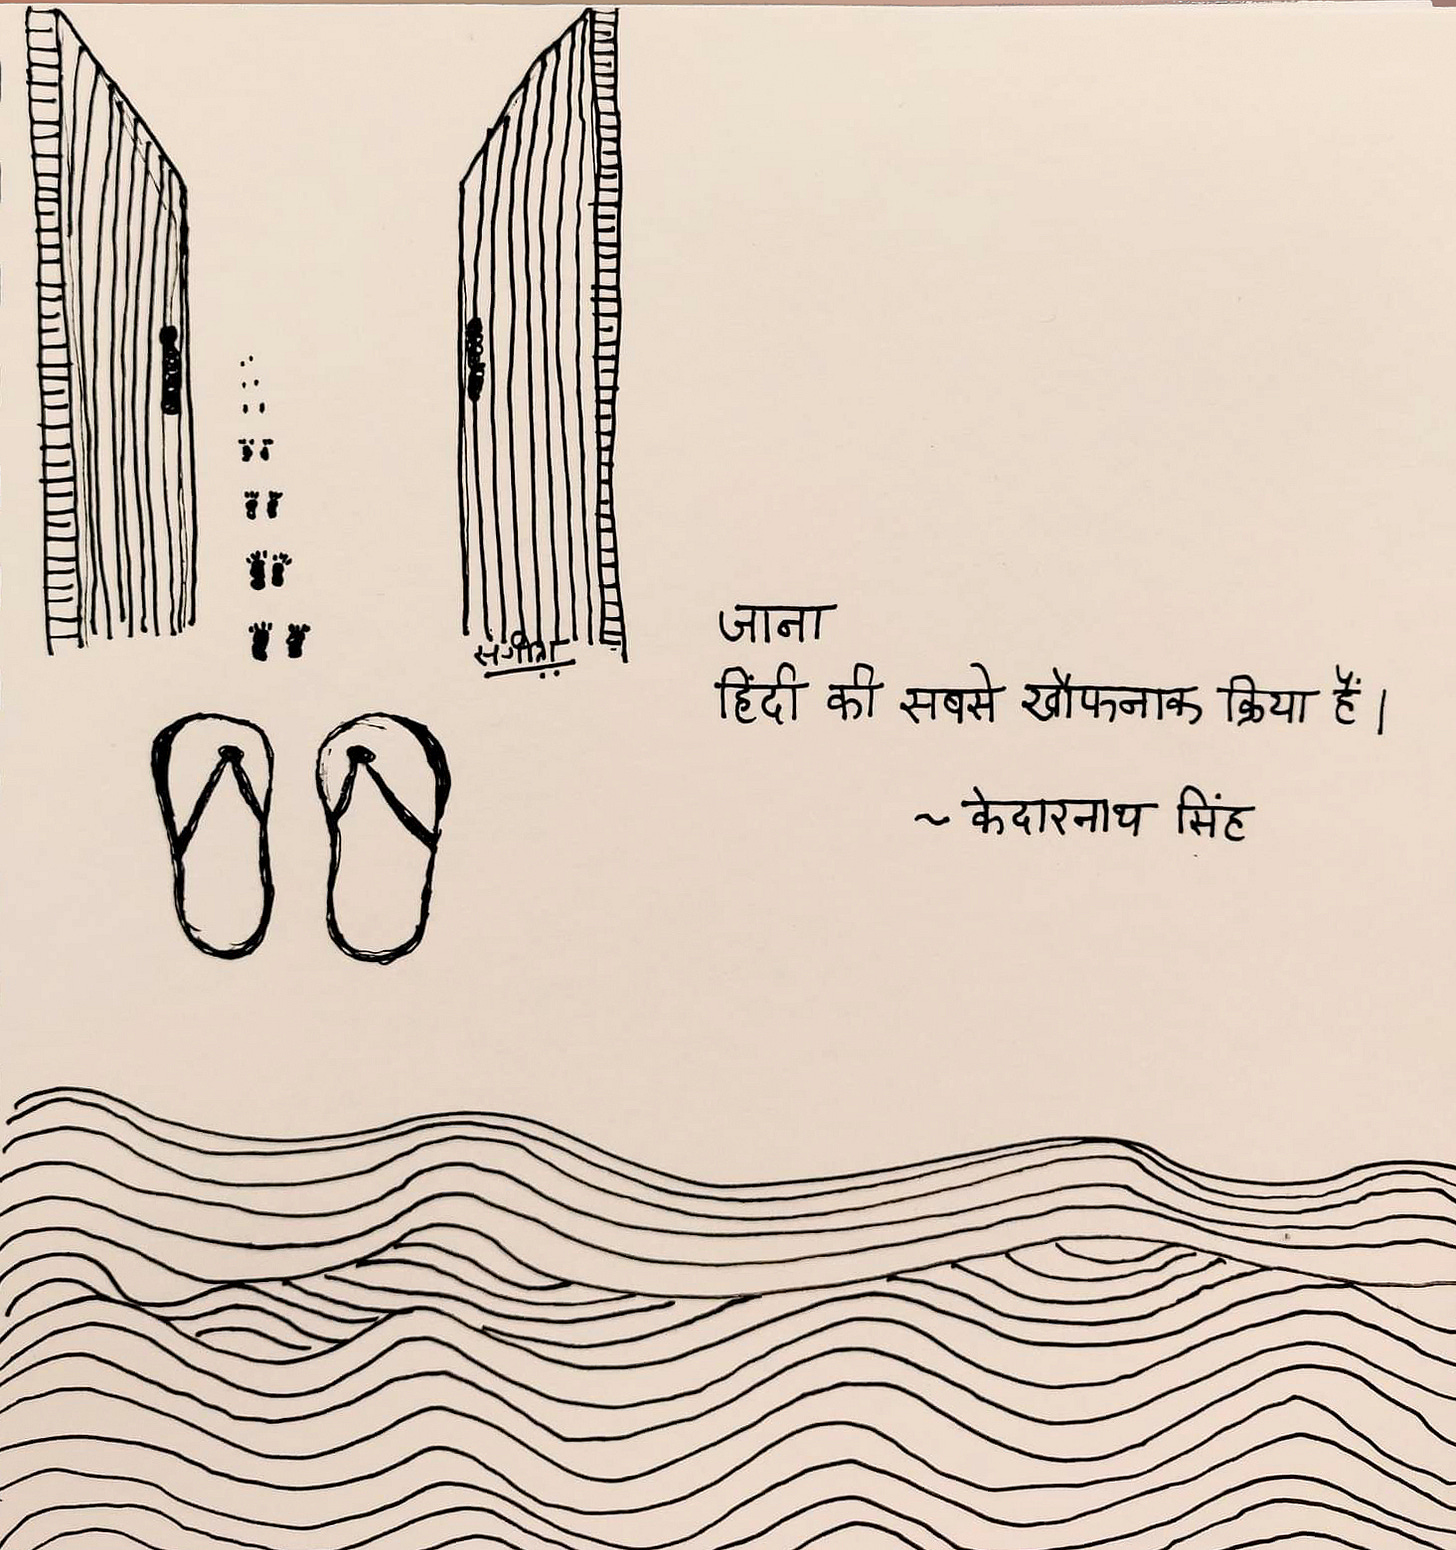 संगीता
जाना
हिंदी की सबसे खौफनाक क्रिया हैं।
~ केदारनाथ सिंह